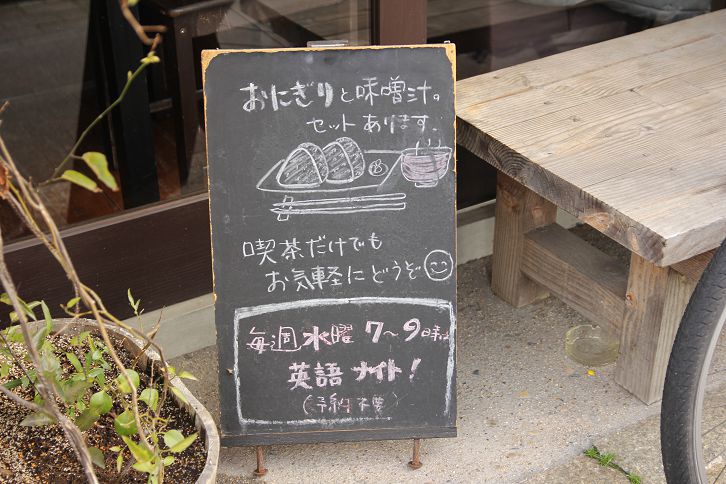 おにぎりと味噌汁。
セットあります.
喫茶だけでも
お気軽にどうぞ
毎週水曜 7〜9時は
英語ナイト!
(予約不要)